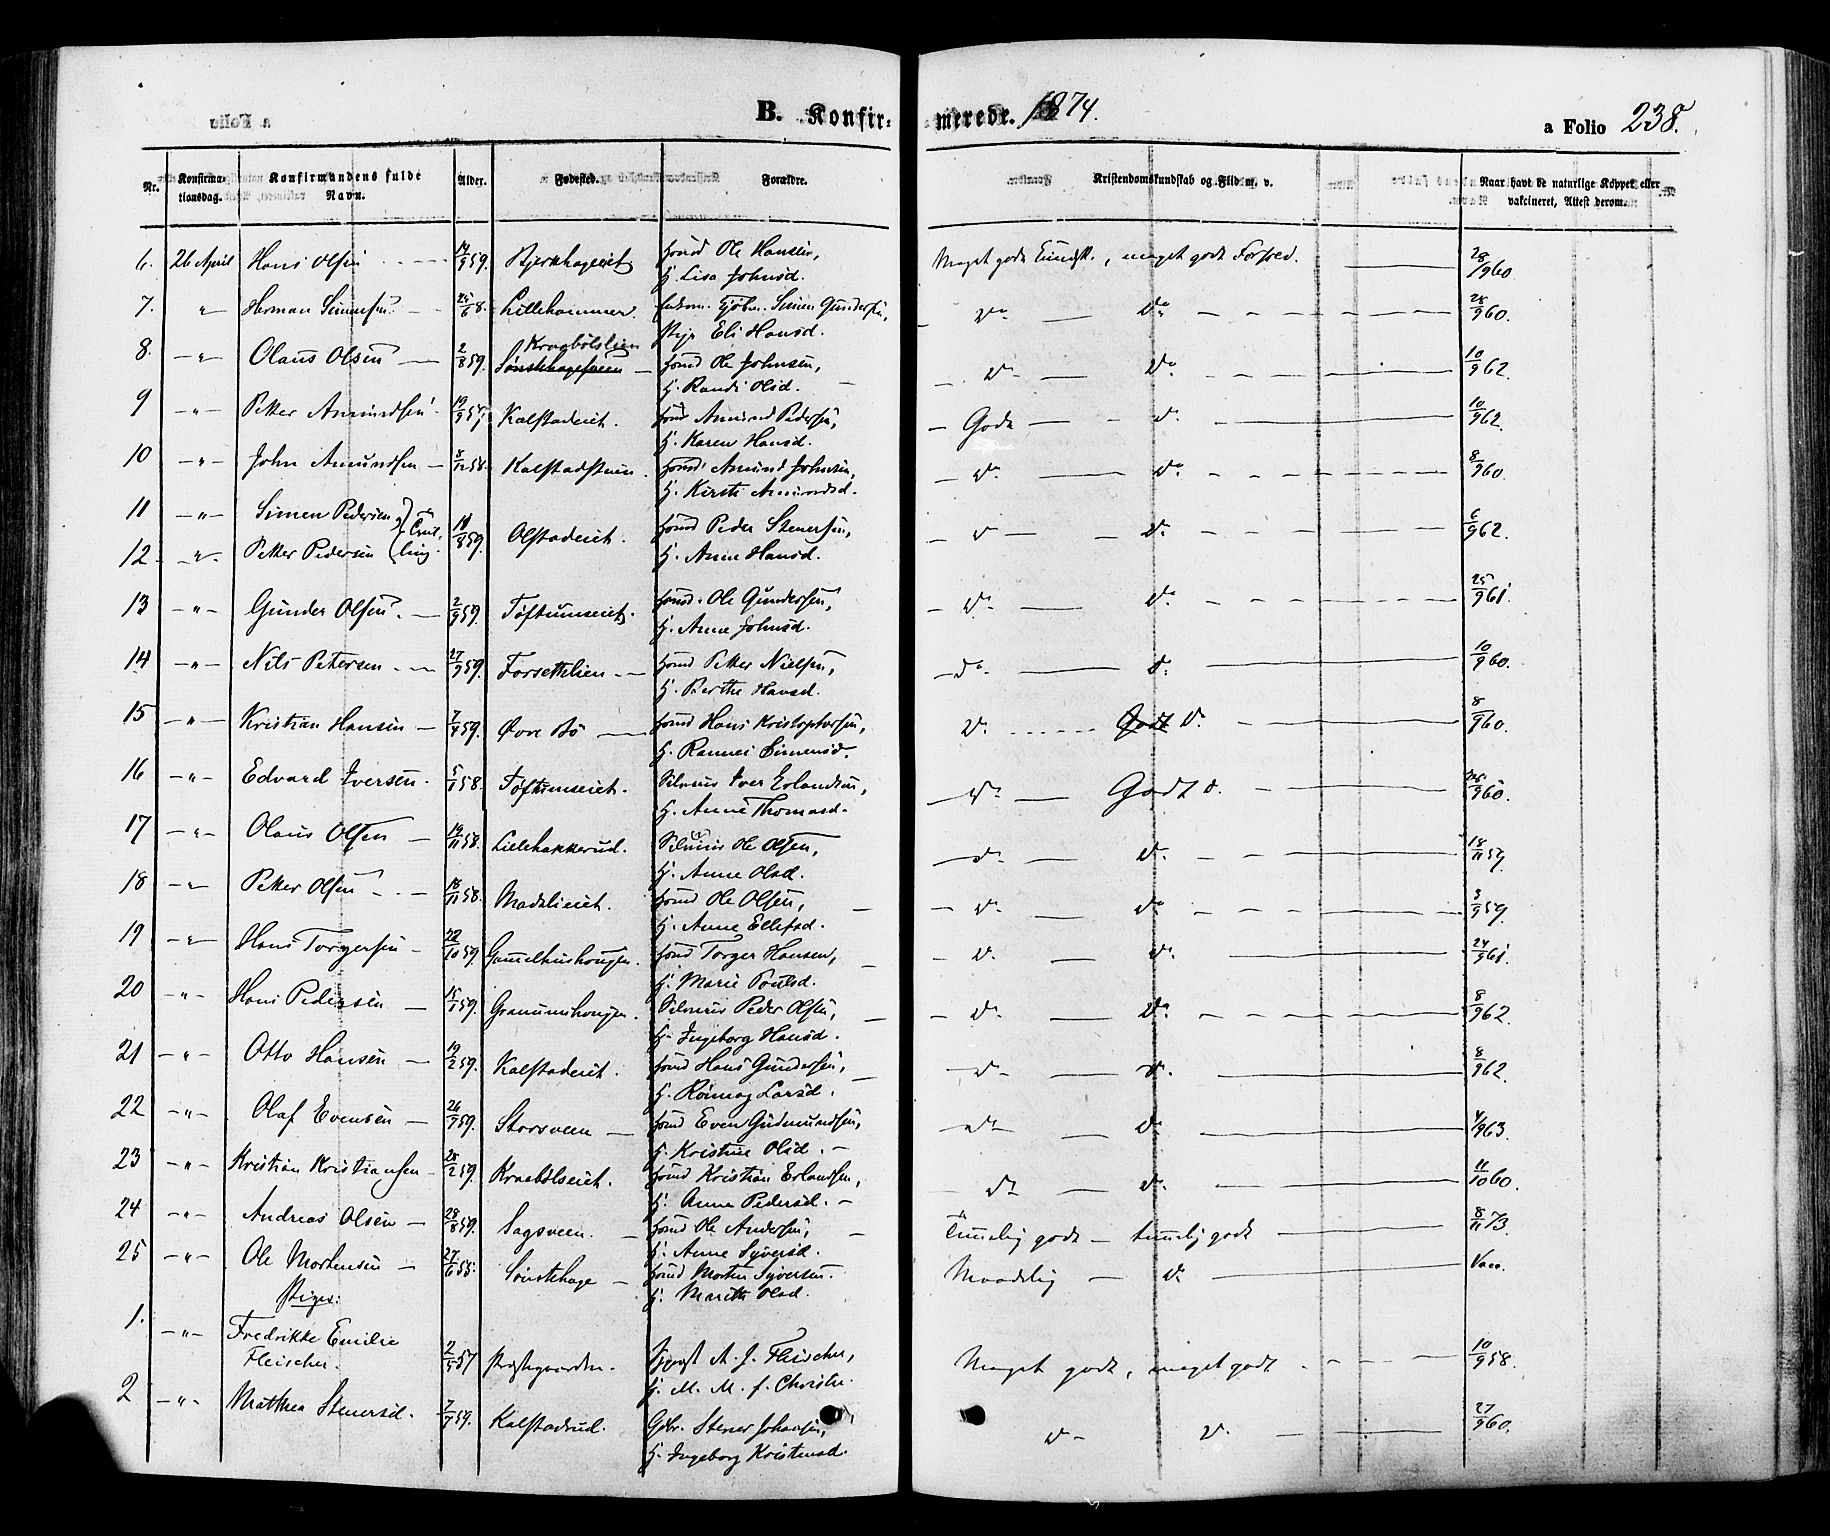 B. Konfir-merede. 1874.
a Folio 238.
Nr. Konfirmationsdag. Konfirmandens fulde Navn. Alder. Fødested. Forældre. Kristendomskundskab og Flid m. v. Naar havt de naturlige Kopper eller vakcineret, Attest derom.
6. 26 April Hans Olsen 14/9 59. Bjerkhageeiet Hmd Ole Hansen, Meget godt Kundsk., meget godt Forhold. 28/9 60.
H. Lisa Johnsd.
7. " Herman Simensen 25/6 8. Lillehammer. Simen Gundersen, do do 28/9 60.
Pige Eli Hansd.
8. " Olaus Olsen 2/8 59. Kraabölslien Hmd Ole Johnsen, do do 10/9 62.
H. Randi Olsd.
9 " Petter Amundsen 19/9 57 Kalstadeiet. Hmd Amund Pedersen, Godt do 10/9 62.
H. Karen Hansd.
10 " John Amundsen 8/12 58. Kalstadstuen. Hmd Amund Johnsen, do do 8/9 60.
H. Kirsti Amundsd.
11 " Simen Pedersen } Tvil- 18/8 59. Olstadeiet. Hmd Peder Stenersen, do do 6/9 62.
12. " Petter Pedersen } ling. H. Anne Hansd.
13 " Gunder Olsen. 2/9 59. Toftumseiet. Hmd. Ole Gundersen, do do 25/9 61.
H. Anne Johnsd.
14 " Nils Petersen 27/9 59. Forsettelien Hmd Petter Nielsen, do do 10/9 60.
H. Berthe Hansd.
15 " Kristian Hansen 7/4 59. Øvre Bö Hmd Hans Kristophersen, do Godt do 8/9 60.
H. Rannei Simensd.
16 " Edvard Iversen. 5/1 58. Toftumseiet. Selveier Iver Erlandsen, do Godt do 25/9 60.
H. Anne Thomasd.
17 " Olaus Olsen 19/11 58. Lillehakkerud. Selveier Ole Olsen, do do 18/11 59.
H. Anne Olsd.
18 " Petter Olsen 18/11 58. Madslieiet. Hmd Ole Olsen, do do 3/9 59.
H. Anne Ellefsd.
19 " Hans Torgersen 22/10 59. Gamelhushougen. Hmd Torger Hansen, do do 24/9 61.
H. Marie Poulsd.
20 " Hans Pedersen 15/1 59. Granumshougen. Selveier Peder Olsen, do do 8/9 62.
H. Ingeborg Hansd.
21 " Otto Hansen 19/2 59. Kalstadeiet. Hmd Hans Gundersen, do do 8/9 62.
H. Rönnog Larsd.
22 " Olaf Evensen 26/9 59. Storsveen Hmd Even Gudmundsen, do do 4/9 63.
H. Kristine Olsd.
23 " Kristian Kristiansen 28/2 59. Kraabölseiet. Hmd Kristian Erlandsen, do do 11/10 60.
H. Anne Pedersd.
24 " Andreas Olsen 28/8 59. Sagsveen. Hmd Ole Andersen, Temmelig godt temmelig godt 8/11 73.
H. Anne Syversd.
25 " Ole Mortensen 27/6 55. Sönstehage Hmd Morten Syversen. Maadelig do Vacc.
H. Marith Olsd.
Piger:
1. " Fredrikke Emilie
Fleischer. 2/5 57 Prestegaarden. Sgprst A. J. Fleischer, Meget godt, meget godt 10/9 58.
H. M. M. f. Christie.
2 " Mathea Stenersd. 7/9 59. Kalstadrud. Gbr. Stener Johansen, do do 27/9 60.
H. Ingeborg Kristensd.